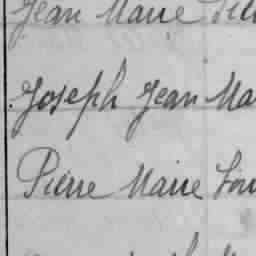 Jean Marie
Joseph Jean Ma
Pierre Marie Lou